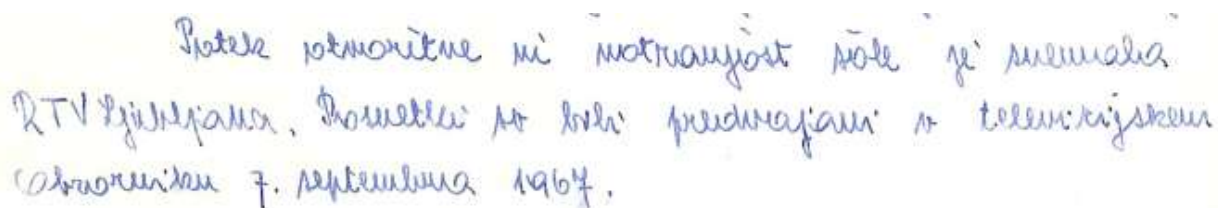 Potek otvoritve ni notranjost šole je snemala
RTV Ljubljana. Posnetki so bili predvajani v televizijskem
obzorniku 7. septembra 1967.